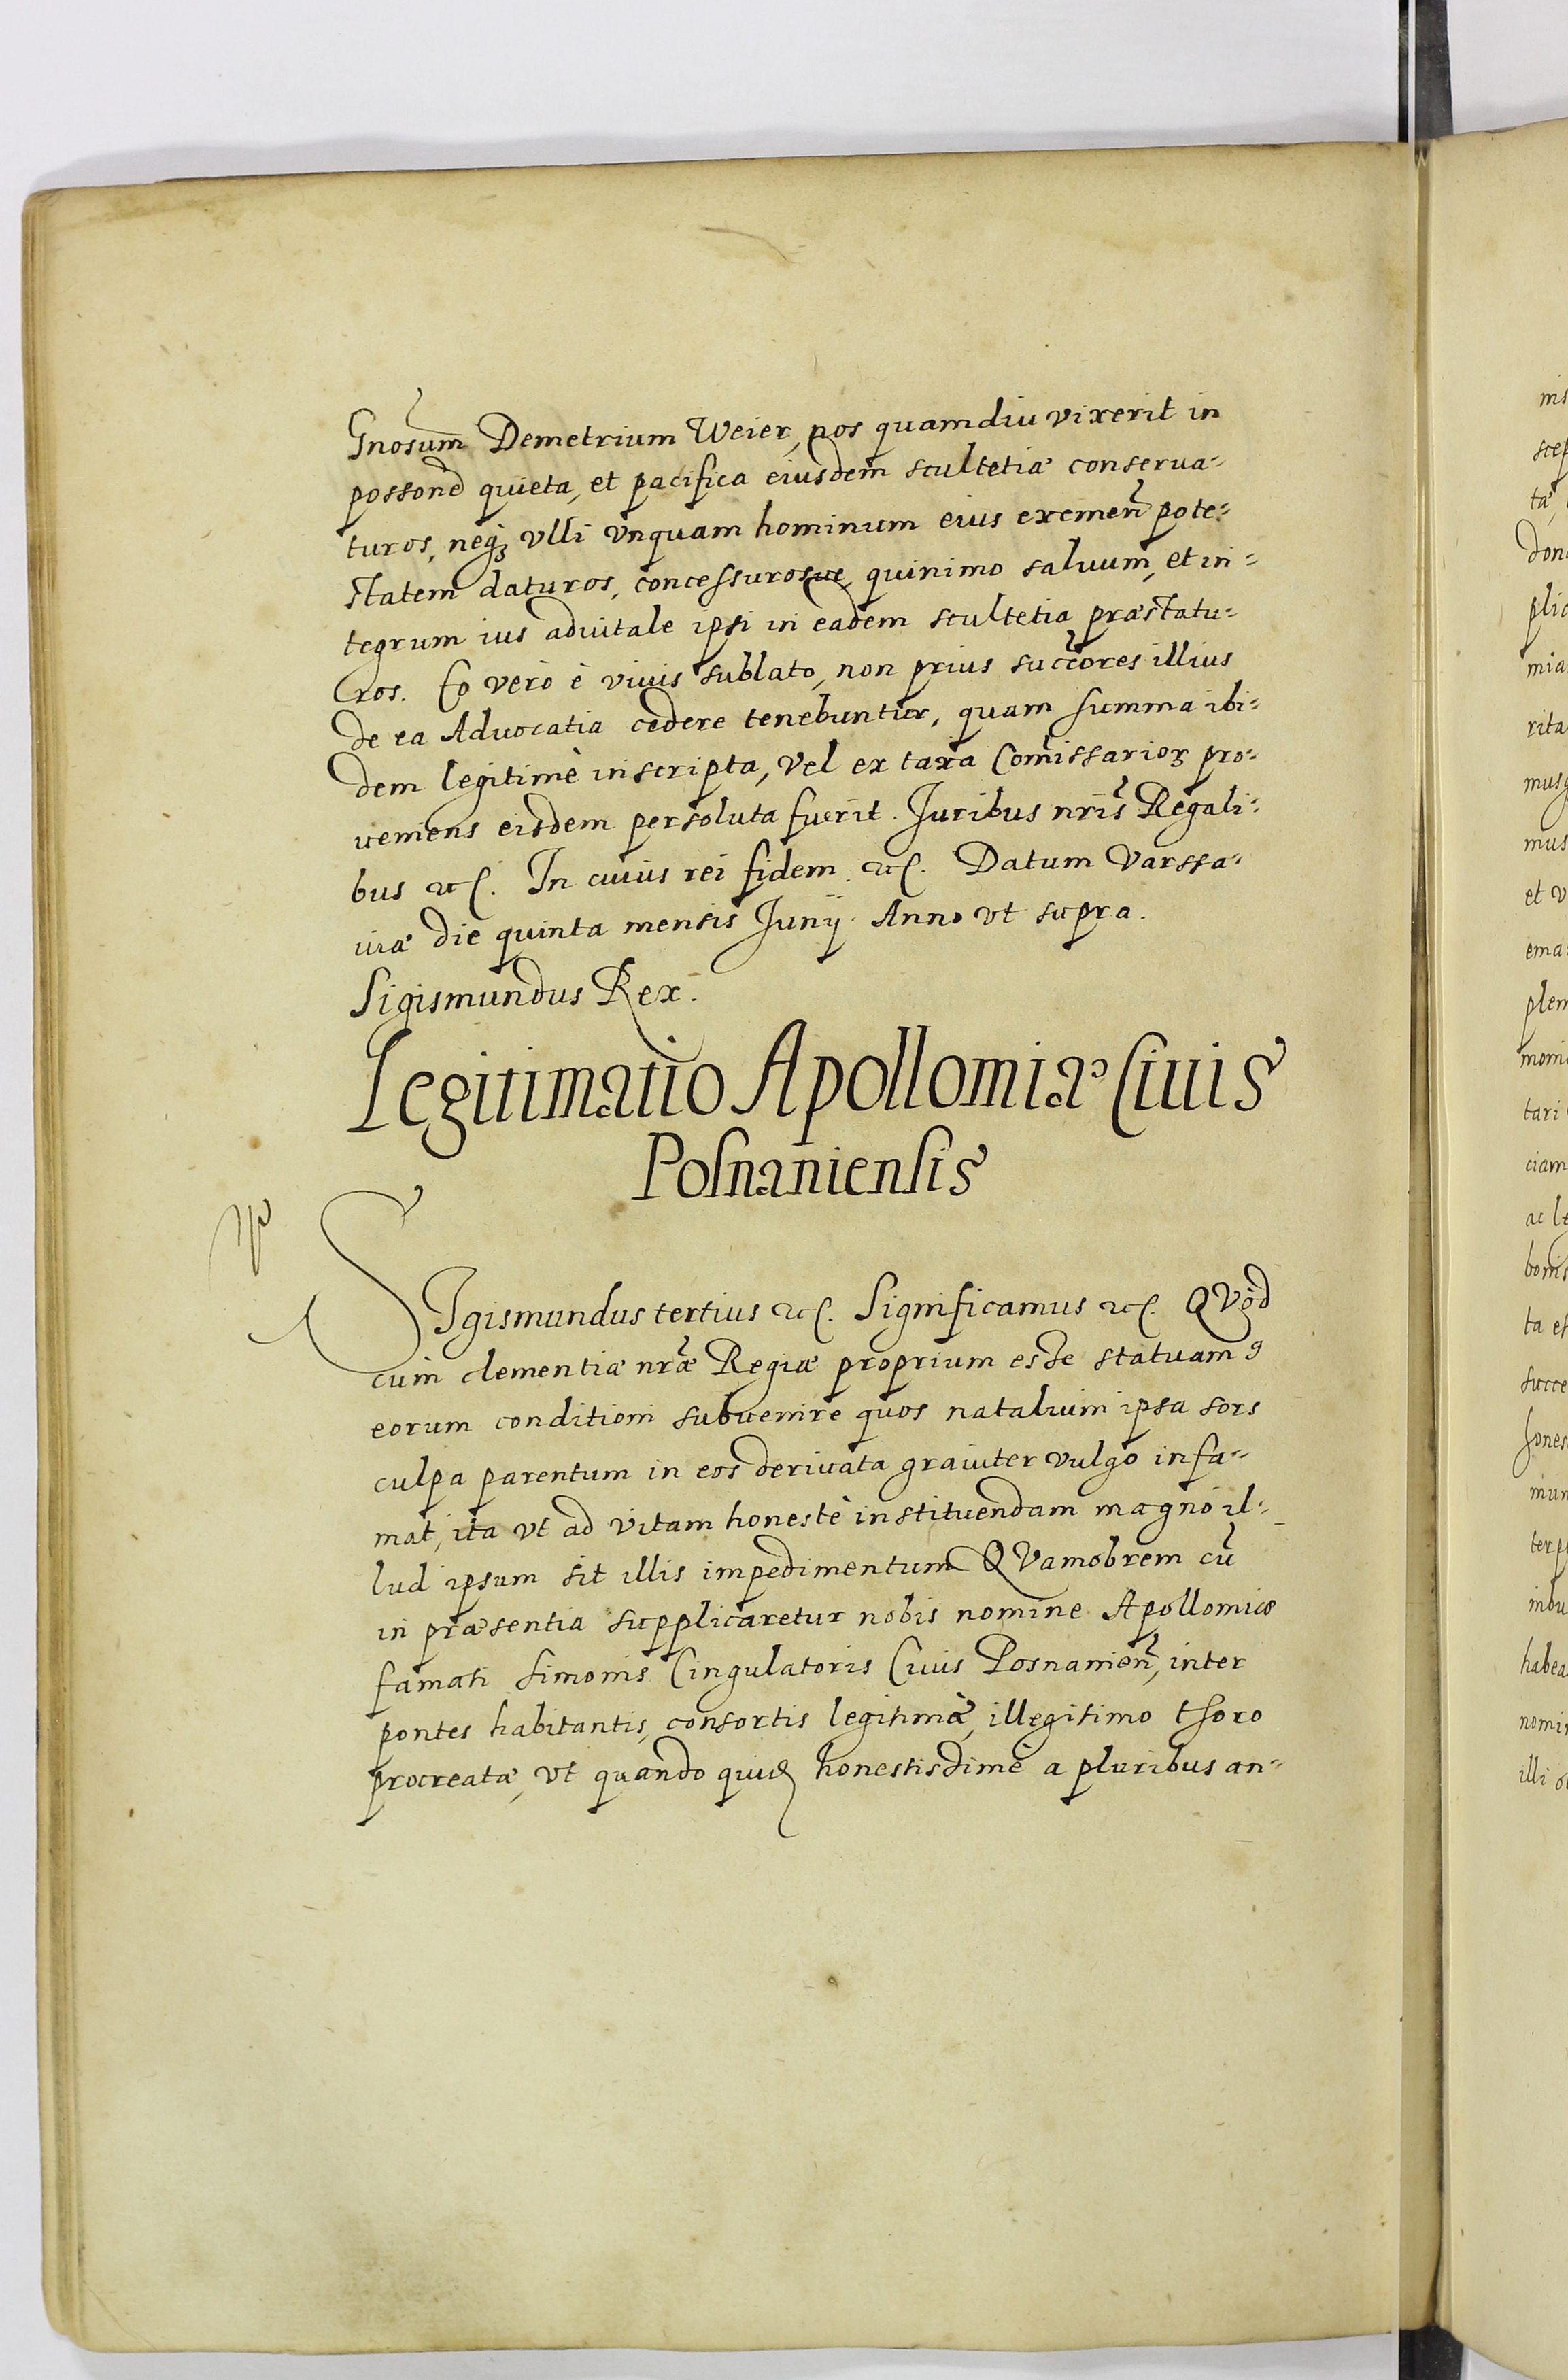 Gnosum Demetrium Weier, nos quamdiu vixerit in
possoned quieta, et pacifica eiusdem scultetiæ conserua-
turos, neqꝫ vlli vnquam hominum eius eximen̄ pote-
statem daturos, concessurosue, quinimo saluum, et in-
tegrum ius aduitale ipsi in eadem scultetia præstatu-
ros. Eo verò è viuis sublato, non prius succ̄ores illius
de ea Aduocatia cedere tenebuntur, quam summa ibi-
dem legitimè inscripta, vel ex taxa Com̄issarioꝝ pro-
ueniens eisdem persoluta fuerit. Juribus nr̄is Regali-
bus etc. In cuius rei fidem etc. Datum Varssa-
uiæ die quinta mensis Junij Anno vt supra.
Sigismundus Rex.
Legitimatio Apolloniæ Ciuis
Posnaniensis
SIgismundus tertius etc. Significamus etc. QVòd
cùm clementiæ nr̄æ Regiæ proprium esse statuamꝰ
eorum conditioni subuenire quos natalium ipsa sors
culpa parentum in eos deriuata grauiter vulgo infa-
mat, ita vt ad vitam honestè instituendam magno il-
lud ipsum sit illis impedimentum QVamobrem cū
in præsentia supplicaretur nobis nomine Apolloniæ
famati Simonis Cingulatoris Ciuis Posnanien̄, inter
pontes habitantis, consortis legitimæ, illegitimo thoro
procreatæ, vt quando quidem honestissimè a pluribus an-